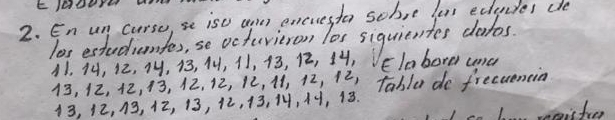 2. En un curso, se iso una encuesta sobre las edades de
los estudiantes, se octuvieron los siguientes datos.
11, 14, 12, 14, 13, 14, 11, 13, 12, 14, Elabora una
13, 12, 12, 13, 12, 12, 12, 11, 12, 12, Tabla de frecuencia
13, 12, 13, 12, 13, 12, 13, 14, 14, 13.